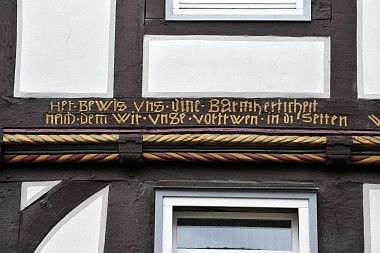 Her · Bewis · Vns · dine · Barmherticheit
nach · dem · wir · Vnse · Vortrwen · in di · setten